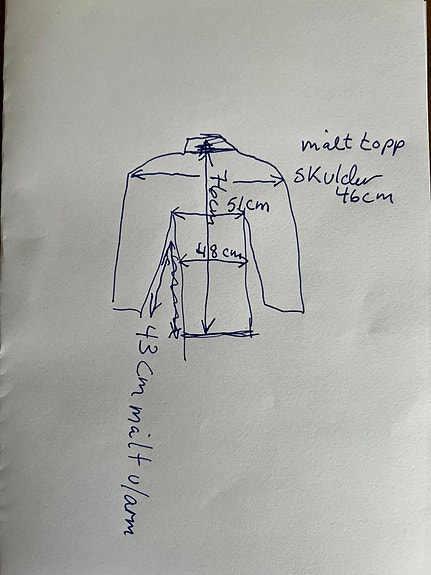 målt topp
skulder
46cm
76cm
51cm
48cm
43cm målt u/arm